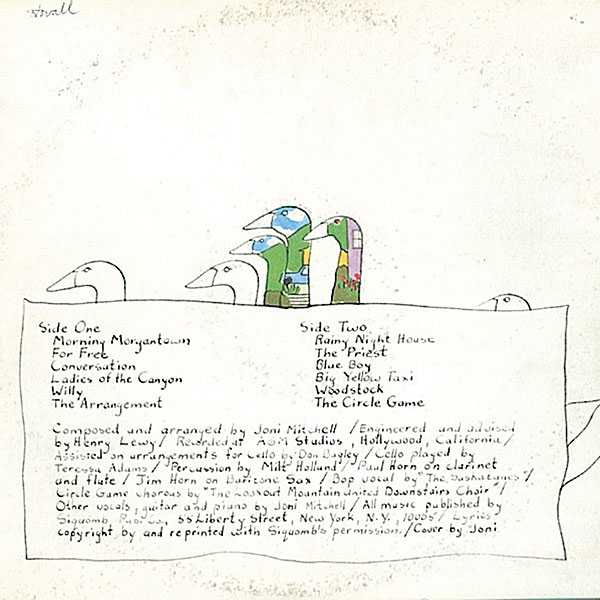 Stovall
Side One
Morning Morgantown
For Free
Conversation
Ladies of the Canyon
Willy
The Arrangement
Side Two
Rainy Night House
The Priest
Blue Boy
Big Yellow Taxi
Woodstock
The Circle Game
Composed and arranged by Joni Mitchell / Engineered and advised
by Henry Lewy / Recorded at A&M Studios, Hollywood, California /
Assisted on arrangements for Cello by Don Bagley / Cello played by
Teressa Adams / Percussion by Milt Holland / Paul Horn on clarinet
and flute / Jim Horn on Baritone Sax / Bop vocal by "The Saskatunes" /
Circle Game chorus by "The Lookout Mountain United Downstairs Choir" /
Other vocals, guitar and piano by Joni Mitchell / All music published by
Siquomb Pub. Co., 55 Liberty Street, New York, N.Y., 10005 / Lyrics
copyright by and reprinted with Siquomb's permission. / Cover by Joni